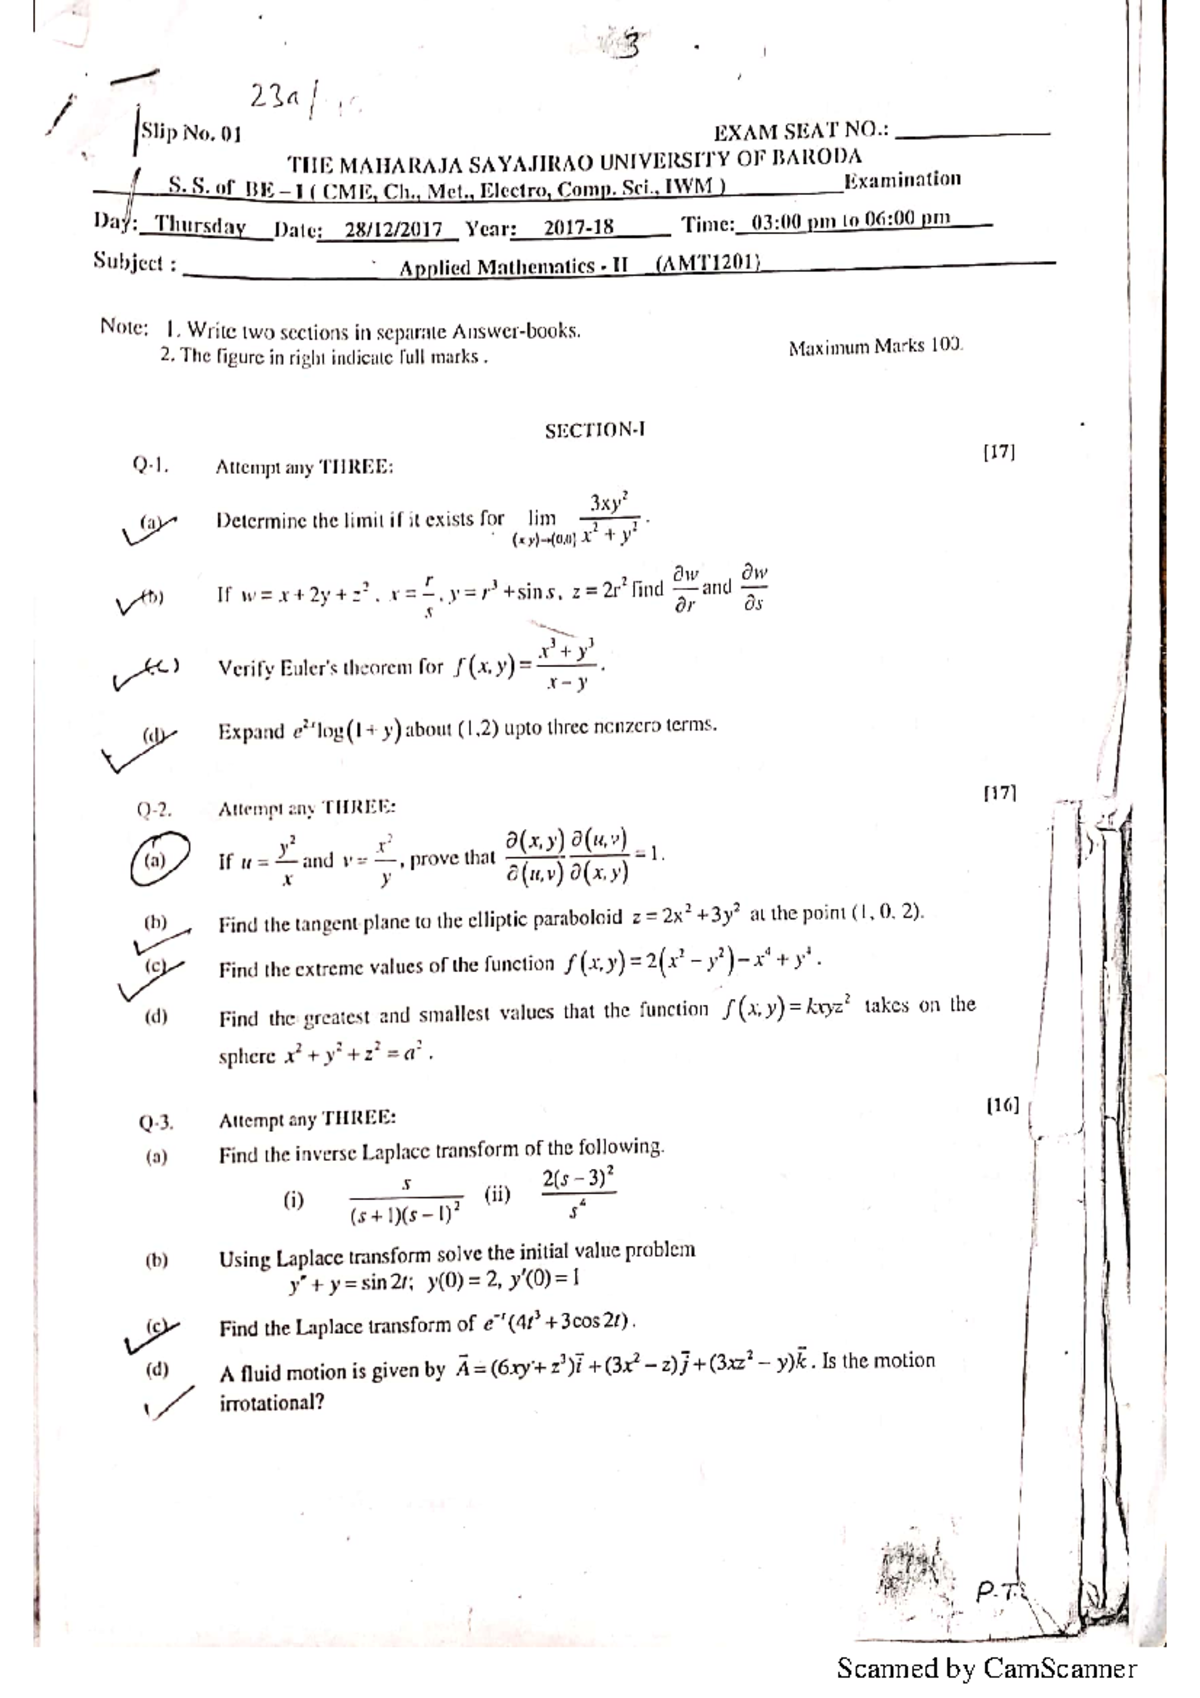 3
23a/
Slip No. 01
EXAM SEAT NO.: ____________
THE MAHARAJA SAYAJIRAO UNIVERSITY OF BARODA
S. S. of BE – I ( CME, Ch., Met., Electro, Comp. Sci., IWM ) Examination
Day: Thursday Date: 28/12/2017 Year: 2017-18 Time: 03:00 pm to 06:00 pm
Subject : Applied Mathematics - II (AMT1201)
Note: 1. Write two sections in separate Answer-books.
2. The figure in right indicate full marks .
Maximum Marks 100.
SECTION-I
Q-1. Attempt any THREE: [17]
(a) Determine the limit if it exists for lim (x y)→(0,0) 3xy²/(x² + y²) .
(b) If w = x + 2y + z² , x = r/s , y = r³ + sin s, z = 2r² find ∂w/∂r and ∂w/∂s
(c) Verify Euler's theorem for f(x, y) = (x³ + y³)/(x − y) .
(d) Expand e²ˣ log(1 + y) about (1,2) upto three nonzero terms.
Q-2. Attempt any THREE: [17]
(a) If u = y²/x and v = x²/y , prove that ∂(x, y)/∂(u, v) ∂(u, v)/∂(x, y) = 1.
(b) Find the tangent plane to the elliptic paraboloid z = 2x² + 3y² at the point (1, 0, 2).
(c) Find the extreme values of the function f(x, y) = 2(x² − y²) − x⁴ + y⁴ .
(d) Find the greatest and smallest values that the function f(x, y) = kxyz² takes on the
sphere x² + y² + z² = a² .
Q-3. Attempt any THREE: [16]
(a) Find the inverse Laplace transform of the following.
(i) s/((s + 1)(s − 1)²) (ii) 2(s − 3)²/s⁴
(b) Using Laplace transform solve the initial value problem
y″ + y = sin 2t; y(0) = 2, y′(0) = 1
(c) Find the Laplace transform of e⁻ᵗ(4t³ + 3cos 2t) .
(d) A fluid motion is given by A̅ = (6xy + z³)i̅ + (3x² − z)j̅ + (3xz² − y)k̅ . Is the motion
irrotational?
P.T.
Scanned by CamScanner